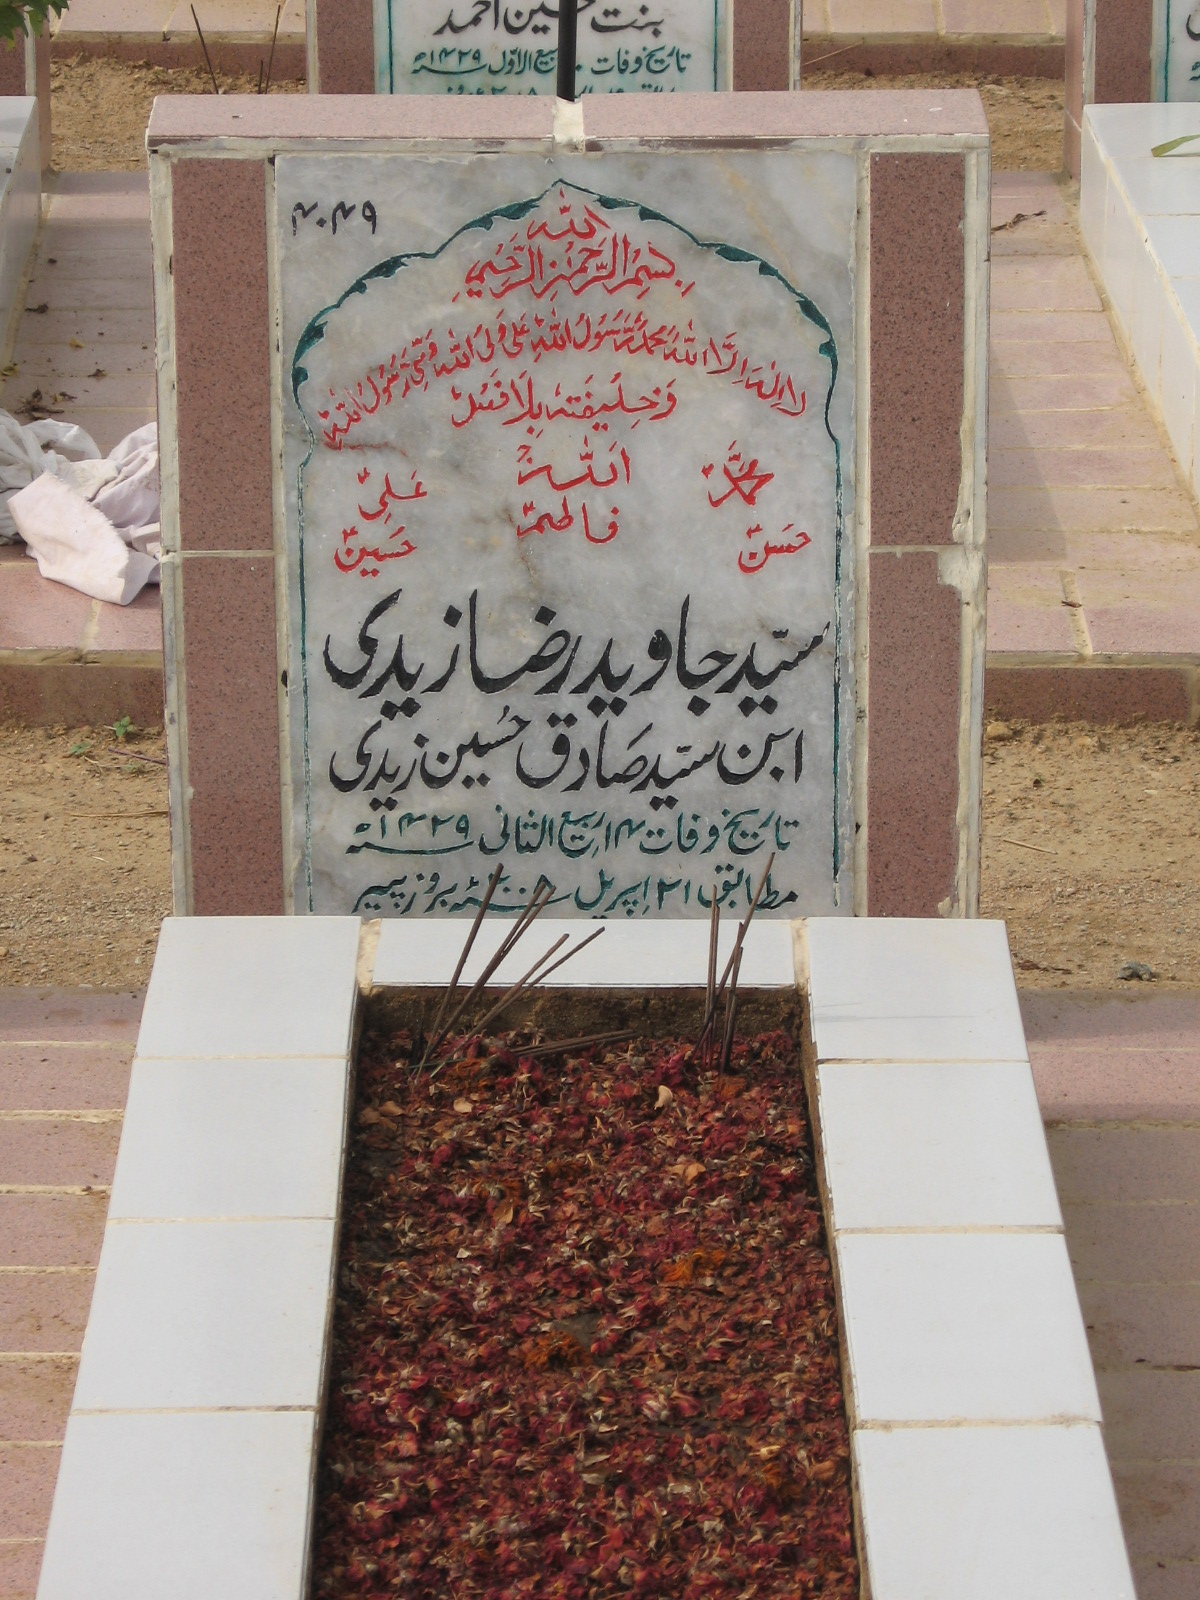 بنت حسین احمد
تاریخ وفات ربیع الاوّل ۱۴۲۹ھ
۴۰۴۹
بِسْمِ اللّٰہِ الرَّحْمٰنِ الرَّحِیْمِ
لا اِلٰہَ اِلَّا اللّٰہُ مُحَمَّدٌ رَّسُوْلُ اللّٰہِ عَلِیٌّ وَلِیُّ اللّٰہِ وَصِیُّ رَسُوْلُ اللّٰہِ
وَخَلِیْفَتَہٗ بِلَا فَصْلْ
محمدؐ اللہ علیؑ
حسنؑ فاطمہؑ حسینؑ
سیّد جاوید رضا زیدی
ابن سیّد صَادق حُسین زیدی
تاریخ وفات ۱۴ رَبیع الثانی ۱۴۲۹ھ
مطابق ۲۱ اپریل ۲۰۰۸ئہ بروز پیر